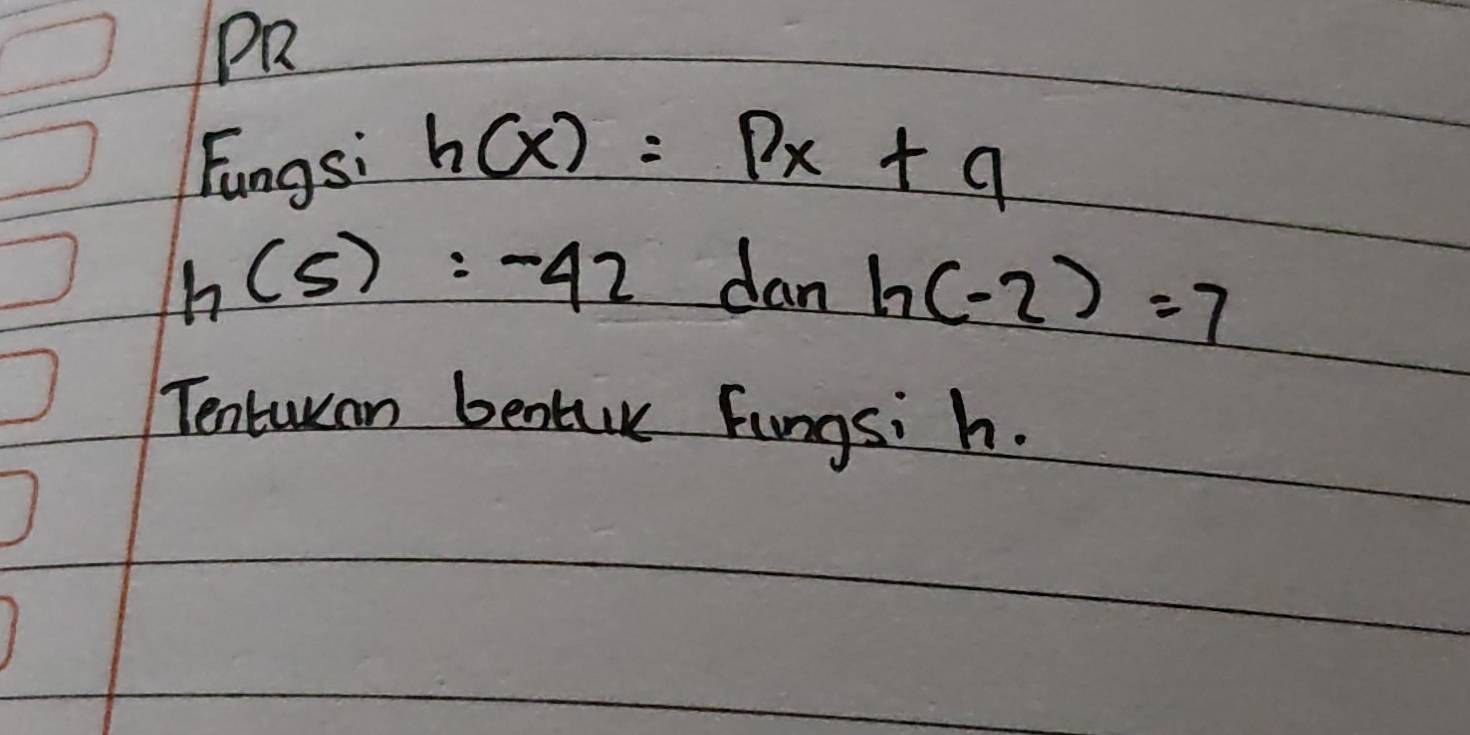 PR
Fungsi h(x) = Px + q
h(5) : -42 dan h(-2) = 7
Tentukan bentuk fungsi h.